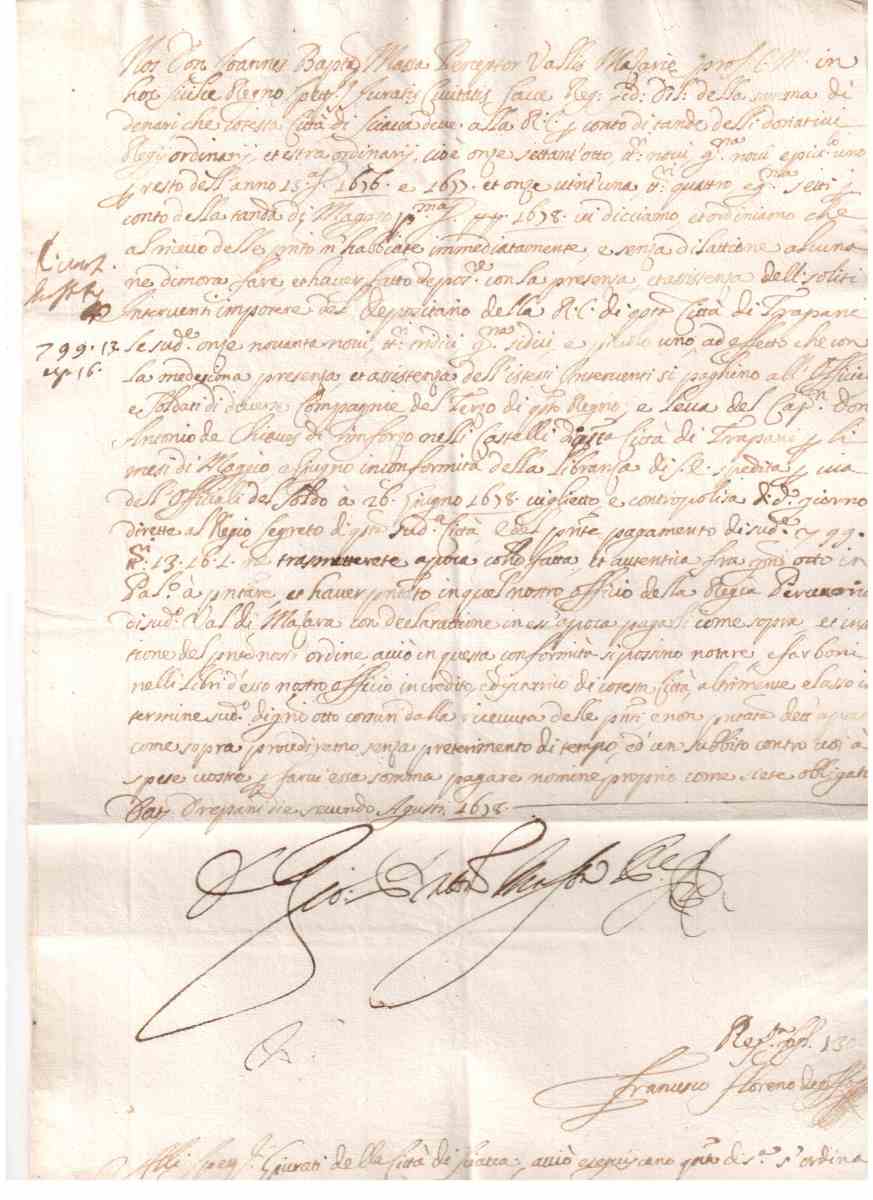 Nos Don Joannes Bapta Massa Perceptor Vallis Mazarie pro S.C.M. in
hoc Sicilie Regno Spett. Juratis Civitatis Sacce Reg. della summa di
denari che cotesta Città di Sciacca deve alla R.C. conto di tande delli donativi
Regij ordinarij, et estraordinarij, cioè onze settant'otto tt. novi gna novi e picolo uno
resto dell'anno 15 1676 e 1677 et onze vint'una tt. quattro, e gna setti
conto della tanda di Maggio pma 1678 vi diciamo et ordiniamo che
al ricevo delle pnti n'habbiate immediatamente, e senza dilattione alcuna
ne dimora fare et haver fatto depore con la presenza et assistenza delli soliti
Interventi in potere del Depositario della R.C. di qsta Città di Trapani
799.13.
e p 16.
le sude onze novanta novi, tt. tridici gna sidici, e picolo uno ad effetto che con
la medesima presenza et assistenza dell'istessi Interventi si paghino all'Officia
e Soldati di diverse Compagnie del Terzo di qsto Regno, e leva del Capn Don
Antonio de Chiaves di rinforzo nelli Castelli di qsta Città di Trapani li
mesi di Maggio e Giugno in conformità della libranza di S.E. spedita via
dell'Officiali del Soldo à 26 Giugno 1678 viglietto e contropolisa di do giorno
dirette al Regio Segreto di qsta suda Città e del pnte pagamento di sude 799.
tti 13.16.1 ne trasmetterete apoca fatta, et autentica fra giorni otto in
Palo à pntare, et haver pntato in quel nostro officio della Regia Percettoria
di sudo Val di Mazara con declarattione in essa apoca pagati come sopra, et
tione del pnte nostro ordine acciò in questa conformità si possino notare e far boni
nelli libri d'esso nostro officio in credito, e discarrico di cotesta Città, altrimente elasso il
termine sudo di giorni otto cotturi dalla ricevuta delle pnti e non pntata dett'apoca
come sopra procediremo senza preterimento di tempo, ed'un subbito contro voi à
spese vostre farvi essa somma pagare nomine proprio come siete obligati
Dat Drepani die secundo Agusti 1678
D Gio: Batta Massa
Rega
Francesco Floreno
Alli Giurati della Città di Sciacca, acciò eseguiscano qnto di sa s'ordina